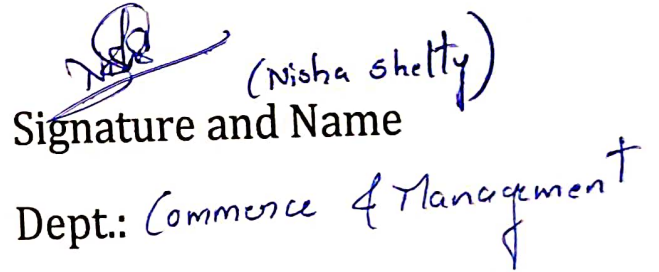 Nisha (Nisha Shetty)
Signature and Name
Dept.: Commerce & Management